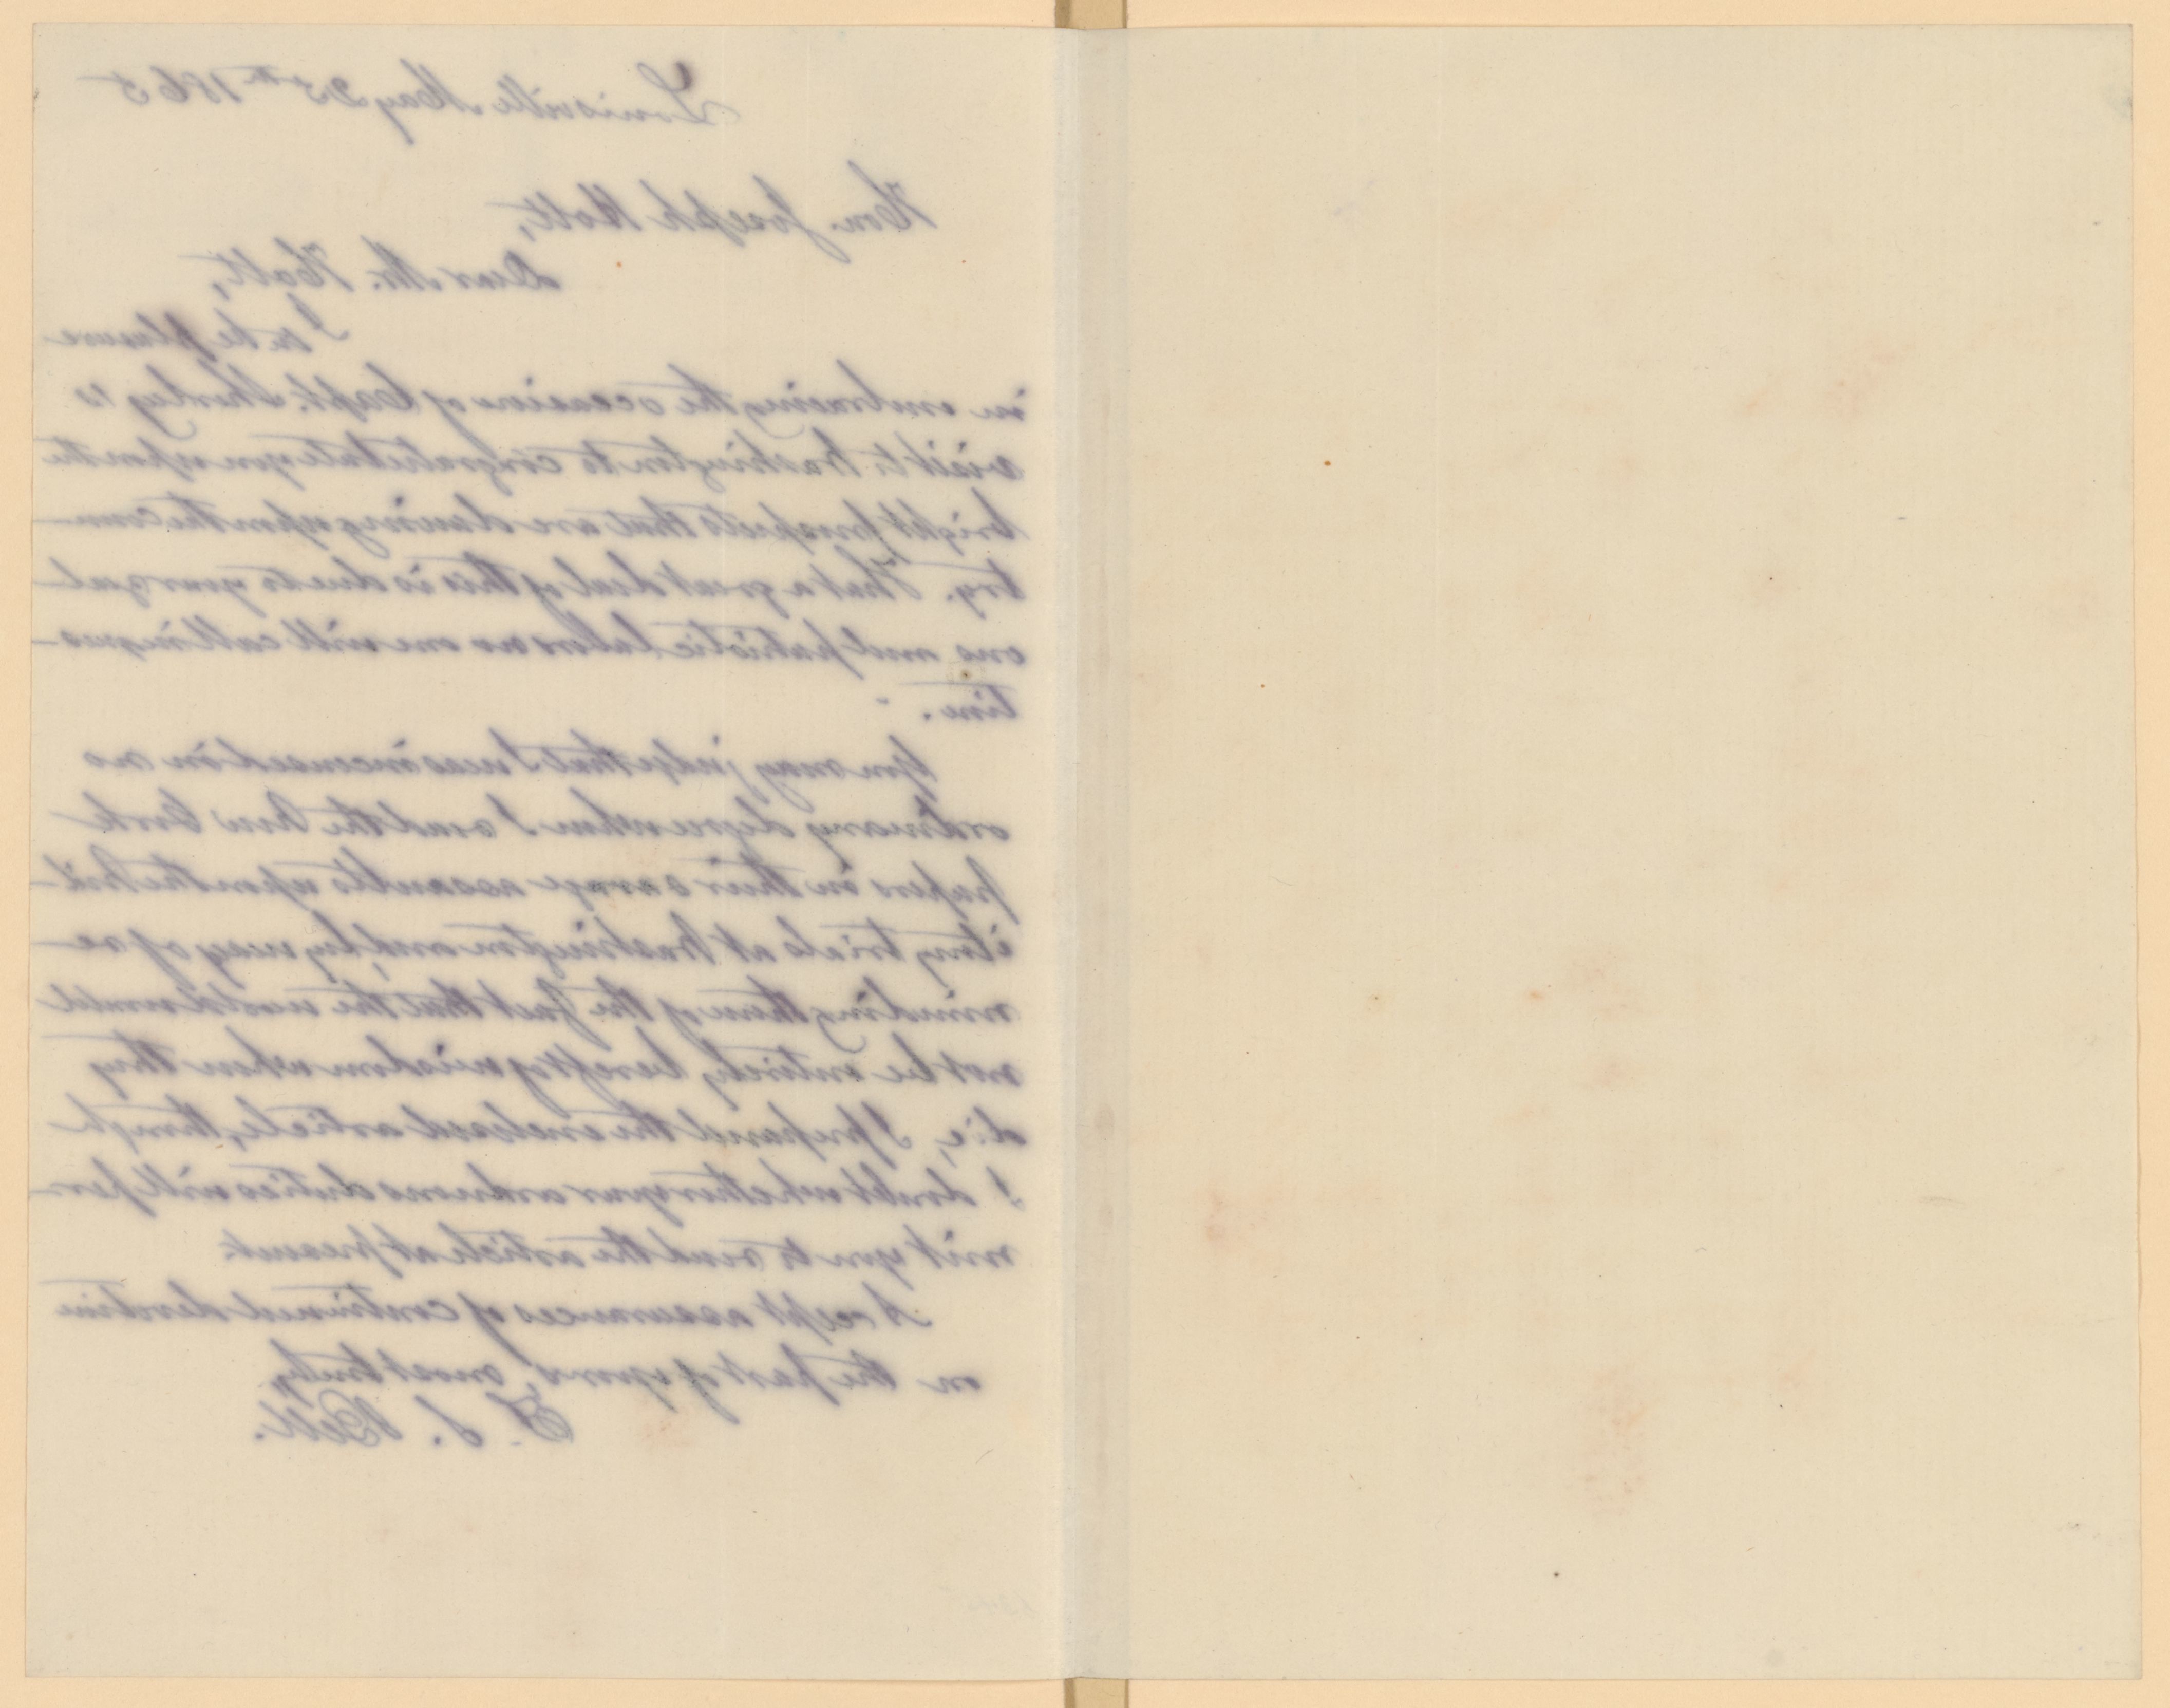 Louisville May 25th 1865
Hon. Joseph Holt,
Dear Mr. Holt,
I take pleasure
in embracing the occasion of Capt. Shorley's
visit to Washington to congratulate you upon the
bright prospects that are dawning upon the coun-
try. That a great deal of this is due to your zeal-
ous and patriotic labors no one will call in ques-
tion.
You may judge that I was incensed in no
ordinary degree when I read the New York
papers in their savage assaults upon the mil-
itary trials at Washington and, by way of re-
minding them of the fact that the world would
not be entirely bereft of wisdom when they
die, I prepared the enclosed article, though
I doubt whether your arduous duties will per-
mit you to read the article at present.
Accept assurances of continued devotion
on the part of yours, most truly,
T. S. Bell.